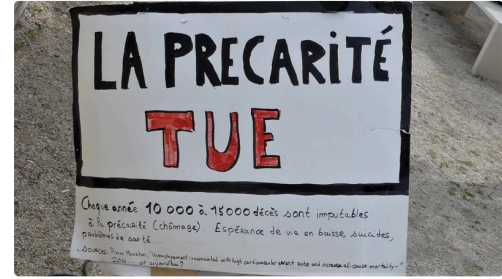 LA PRECARITÉ
TUE
Chaque année 10 000 à 15000 décès sont imputables
à la précarité (chômage). Espérance de vie en baisse, suicides,
problèmes de santé.
SOURCES: Pierre Meneton, "Unemployment is associated with high cardiovascular event rate and increased all-cause mortality"
et aujourd'hui?